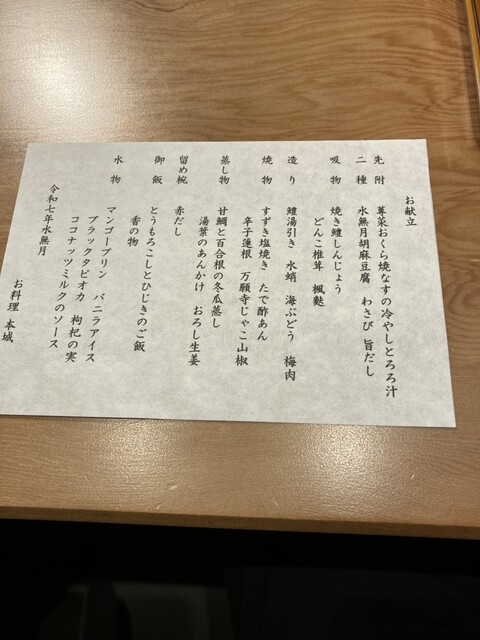 お献立
先附 蓴菜おくら焼なすの冷やしとろろ汁
二種 水無月胡麻豆腐 わさび 旨だし
吸物 焼き鱧しんじょう
どんこ椎茸 楓麩
造り 鱧湯引き 水蛸 海ぶどう 梅肉
焼物 すずき塩焼き たで酢あん
辛子蓮根 万願寺じゃこ山椒
蒸し物 甘鯛と百合根の冬瓜蒸し
湯葉のあんかけ おろし生姜
留め椀 赤だし
御飯 とうもろこしとひじきのご飯
香の物
水物 マンゴープリン バニラアイス
ブラックタピオカ 枸杞の実
ココナッツミルクのソース
令和七年水無月
お料理 本城